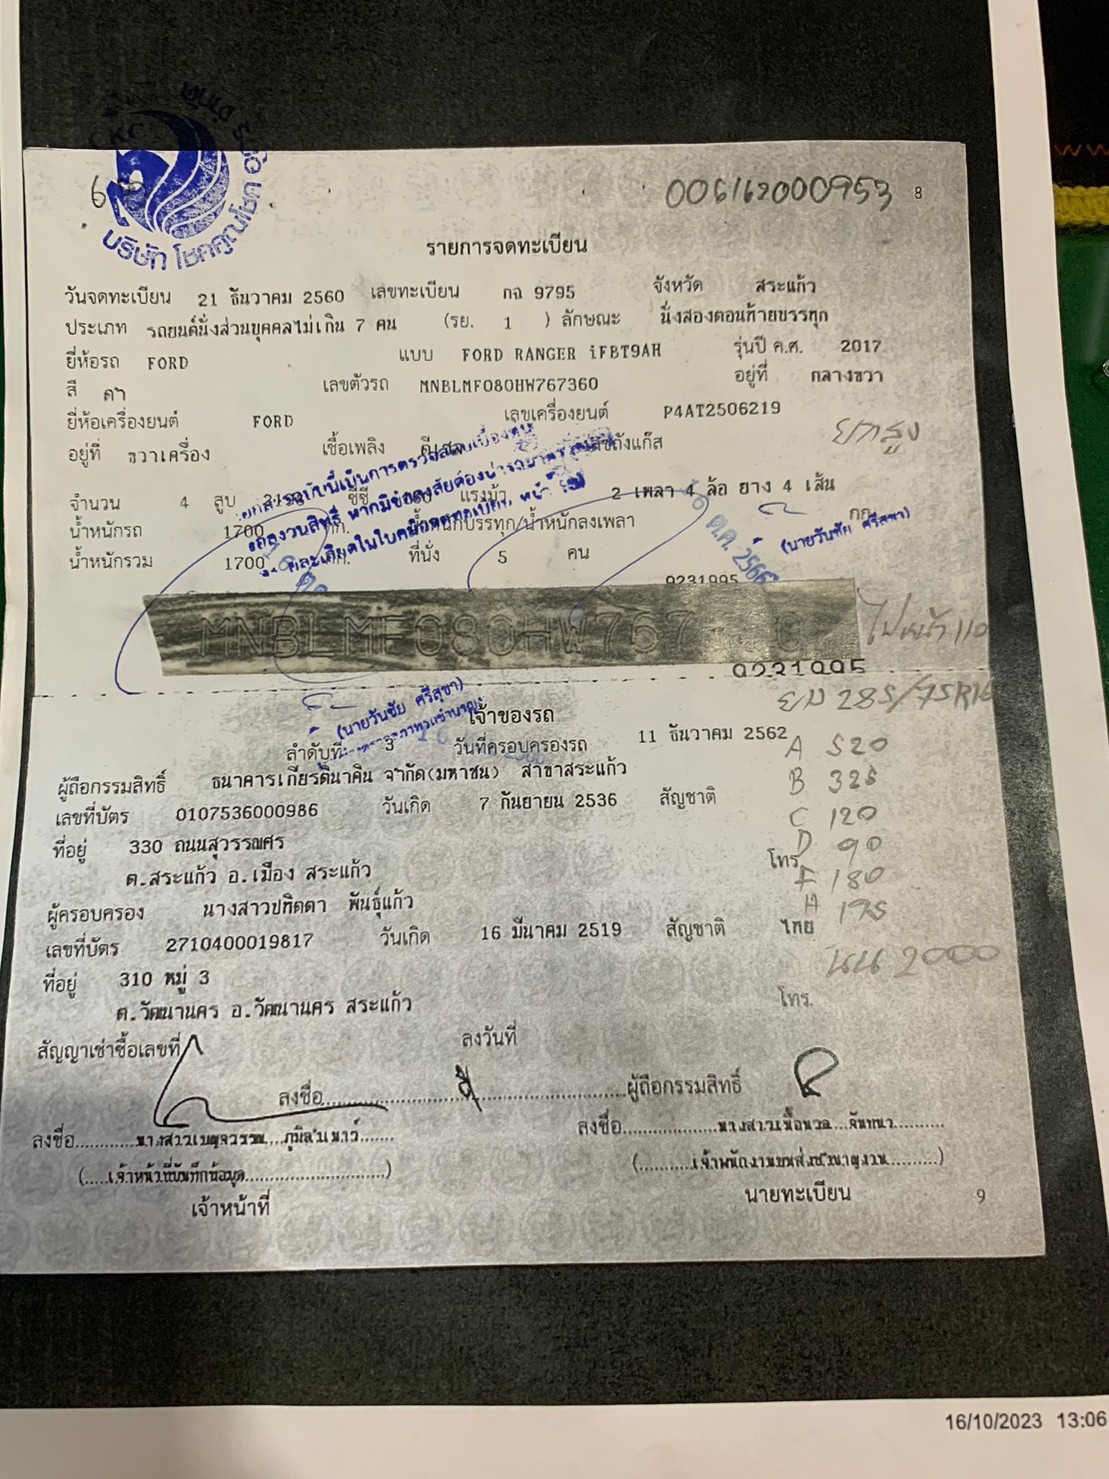 CKC
บริษัท โชคคูณโชค
006162000953 8
รายการจดทะเบียน
วันจดทะเบียน 21 ธันวาคม 2560 เลขทะเบียน กฉ 9795 จังหวัด สระแก้ว
ประเภท รถยนต์นั่งส่วนบุคคลไม่เกิน 7 คน (รย. 1 ) ลักษณะ นั่งสองตอนท้ายบรรทุก
ยี่ห้อรถ FORD แบบ FORD RANGER iFBT9AH รุ่นปี ค.ศ. 2017
สี ดำ เลขตัวรถ MNBLMF080HW767360 อยู่ที่ กลางขวา
ยี่ห้อเครื่องยนต์ FORD เลขเครื่องยนต์ P4AT2506219
ยกสูง
อยู่ที่ ขวาเครื่อง เชื้อเพลิง ดีเซล เลขถังแก๊ส
จำนวน 4 สูบ ซีซี แรงม้า 2 เพลา 4 ล้อ ยาง 4 เส้น
น้ำหนักรถ 1700 กก. น้ำหนักบรรทุก/น้ำหนักลงเพลา กก.
น้ำหนักรวม 1700 กก. ที่นั่ง 5 คน
(นายวันชัย ศรีสุขา)
ต.ค. 2566
9231995
MNBLMF080HW767
ไฟหน้า 110
9231995
(นายวันชัย ศรีสุขา)
เจ้าของรถ
ลำดับที่ 3 วันที่ครอบครองรถ 11 ธันวาคม 2562
A 520
ผู้ถือกรรมสิทธิ์ ธนาคารเกียรตินาคิน จำกัด(มหาชน) สาขาสระแก้ว
B 325
เลขที่บัตร 0107536000986 วันเกิด 7 กันยายน 2536 สัญชาติ
C 120
ที่อยู่ 330 ถนนสุวรรณศร
D 90
ต.สระแก้ว อ.เมือง สระแก้ว โทร.
F 180
ผู้ครอบครอง นางสาวปทิตตา พันธุ์แก้ว
H 195
เลขที่บัตร 2710400019817 วันเกิด 16 มีนาคม 2519 สัญชาติ ไทย
นน 2000
ที่อยู่ 310 หมู่ 3
ต.วัฒนานคร อ.วัฒนานคร สระแก้ว โทร.
สัญญาเช่าซื้อเลขที่ ลงวันที่
ลงชื่อ ผู้ถือกรรมสิทธิ์
ลงชื่อ ลงชื่อ
เจ้าหน้าที่ นายทะเบียน 9
16/10/2023 13:06